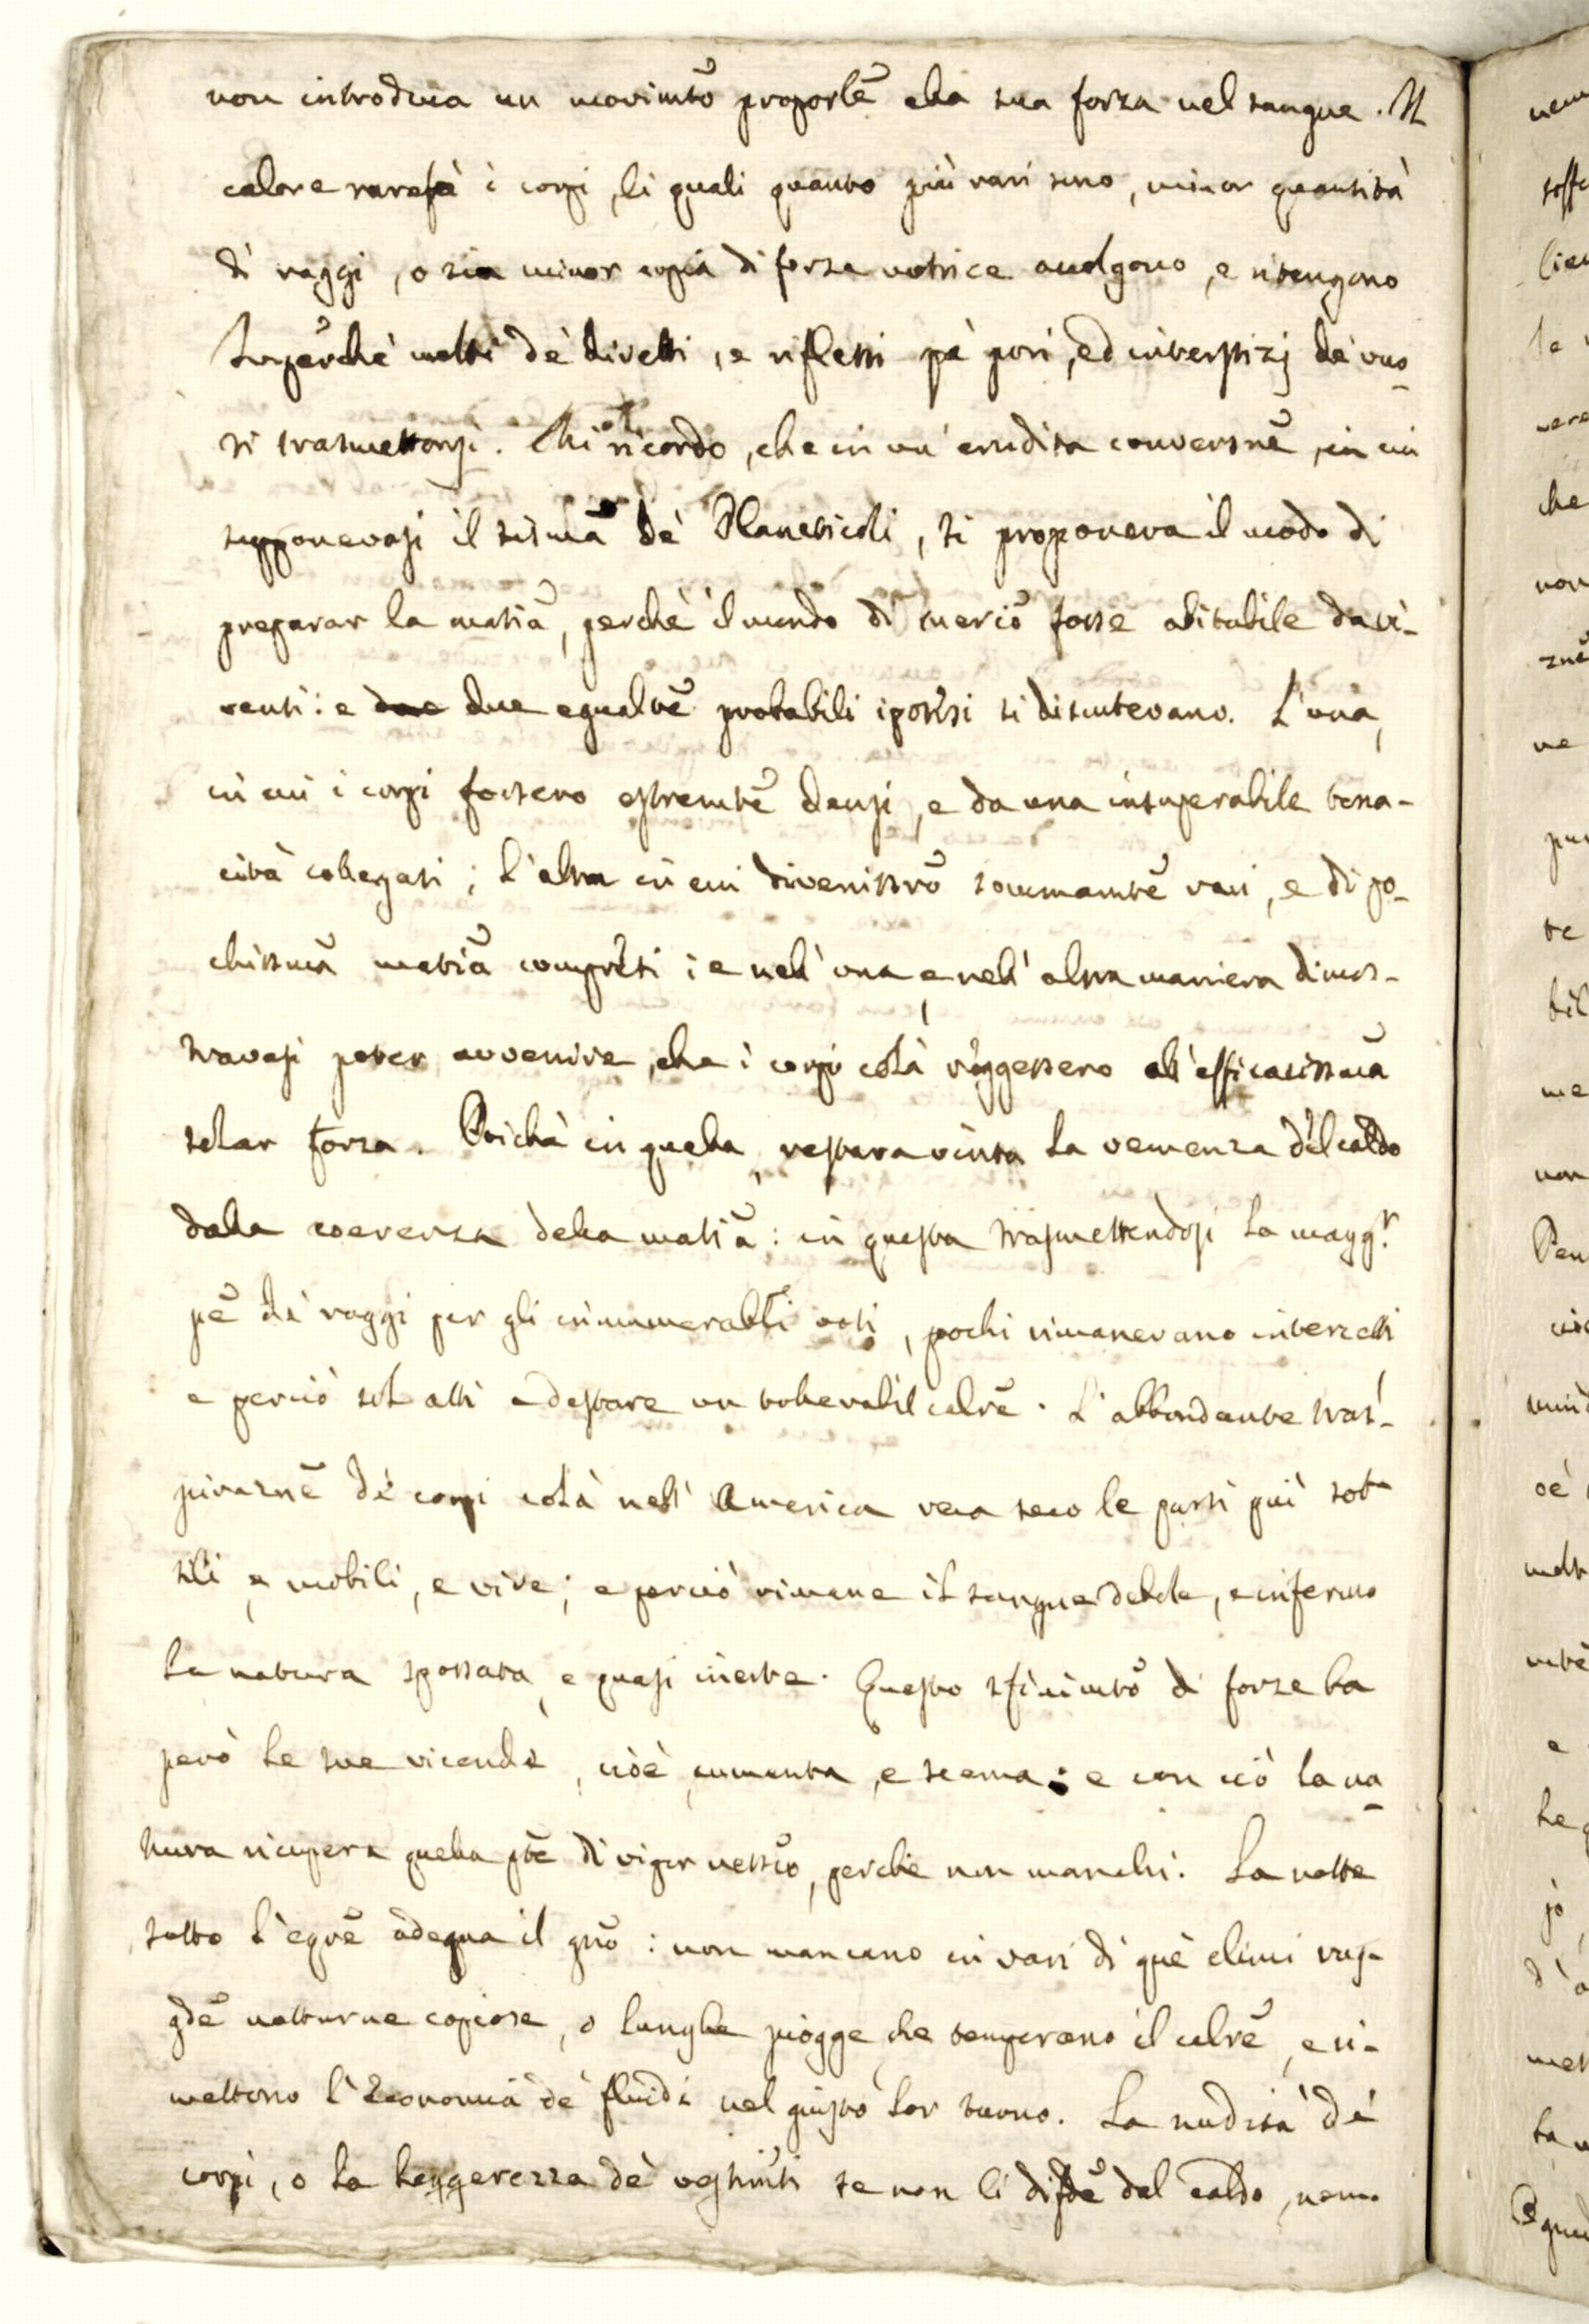 non introduca un movimtõ proportẽ alla sua forza nel sangue. Il
calore rarefà i corpi, li quali quanto più rari sono, minor quantità
di raggi, o sia minor copia di forza motrice accolgono, e ritengono
Imperchè molti de' diretti, e riflessi pe' pori, ed interstizj de' vuo-
ti trasmettonsi. Mi ricordo, che in un' erudita conversnẽ, in cui
supponevasi il sistmã de' Planeticoli, si proponeva il modo di
preparar la matiã, perchè il mondo di Merciõ fosse abitabile da vi-
venti: e due egualtẽ probabili ipotesi si discutevano. L'una,
in cui i corpi fossero estremtẽ densi, e da una insuperabile tena-
cità collegati; l'altra in cui divenissrõ sommamtẽ rari, e di po-
chissmã matiã composti; e nell' una, e nell' altra maniera dimos-
travasi poter avvenire, che i corpi colà reggessero all' efficacissmã
solar forza. Poichè in quella, restava vinta la veemenza del caldo
dalla coerenza della matiã: in questa trasmettendosi la magg.r
pẽ de' raggi per gli innumerabli voti, pochi rimanevano intercetti
e perciò sol atti a destare un tollerabil calrẽ. L'abbondante tras-
piraznẽ de' corpi colà nell' America reca seco le parti più sot
tili, e mobili, e vive; e perciò rimane il sangue debole, e infermo
la natura spossata, e quasi inerte. Questo sfinimtõ di forze ha
però le sue vicende, cioè aumenta, e scema; e con ciò la na
tura ricupera quella ptẽ di vigor nessrio, perchè non manchi. La notte
sotto l'eqrẽ adegua il gnõ: non mancano in vari di què climi rug-
gdẽ notturne copiose, o lunghe piogge che temperano il calrẽ, e ri-
mettono l'Economia de' fluidi nel giusto lor tuono. La nudità de'
corpi, o la leggerezza de' vestimti se non li difdẽ dal caldo, nem.